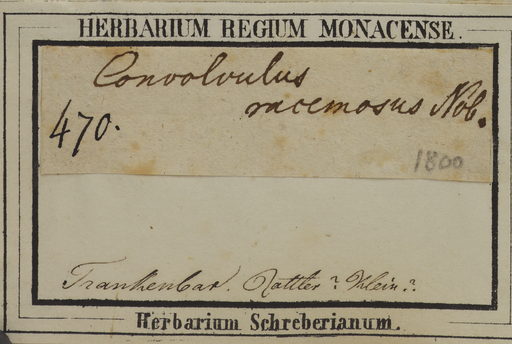 HERBARIUM REGIUM MONACENSE.
Convolvulus
racemosus Nob.
470.
1800
Trankenbar. Rottler? Klein??
Herbarium Schreberianum.